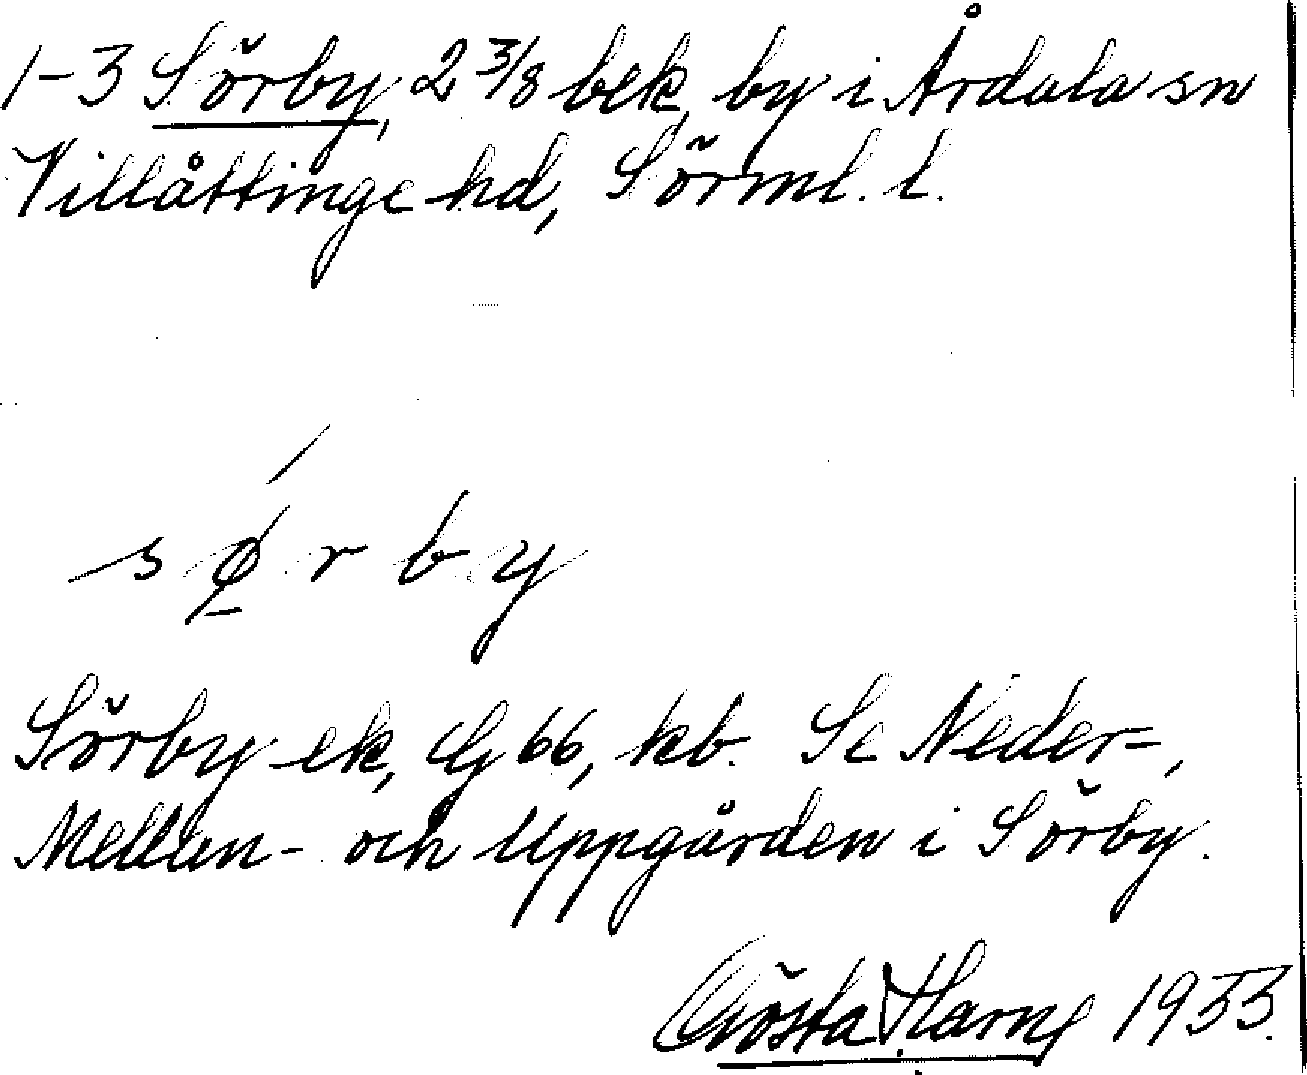 1-3 Sörby, 2 3/8 bek, by i Årdala sn
Villåttinge hd, Sörml. l.
sø̱rby
Sörby ek, G 66, kb. Se Neder-,
Mellan- och Uppgården i Sörby.
Gösta Harng 1933.